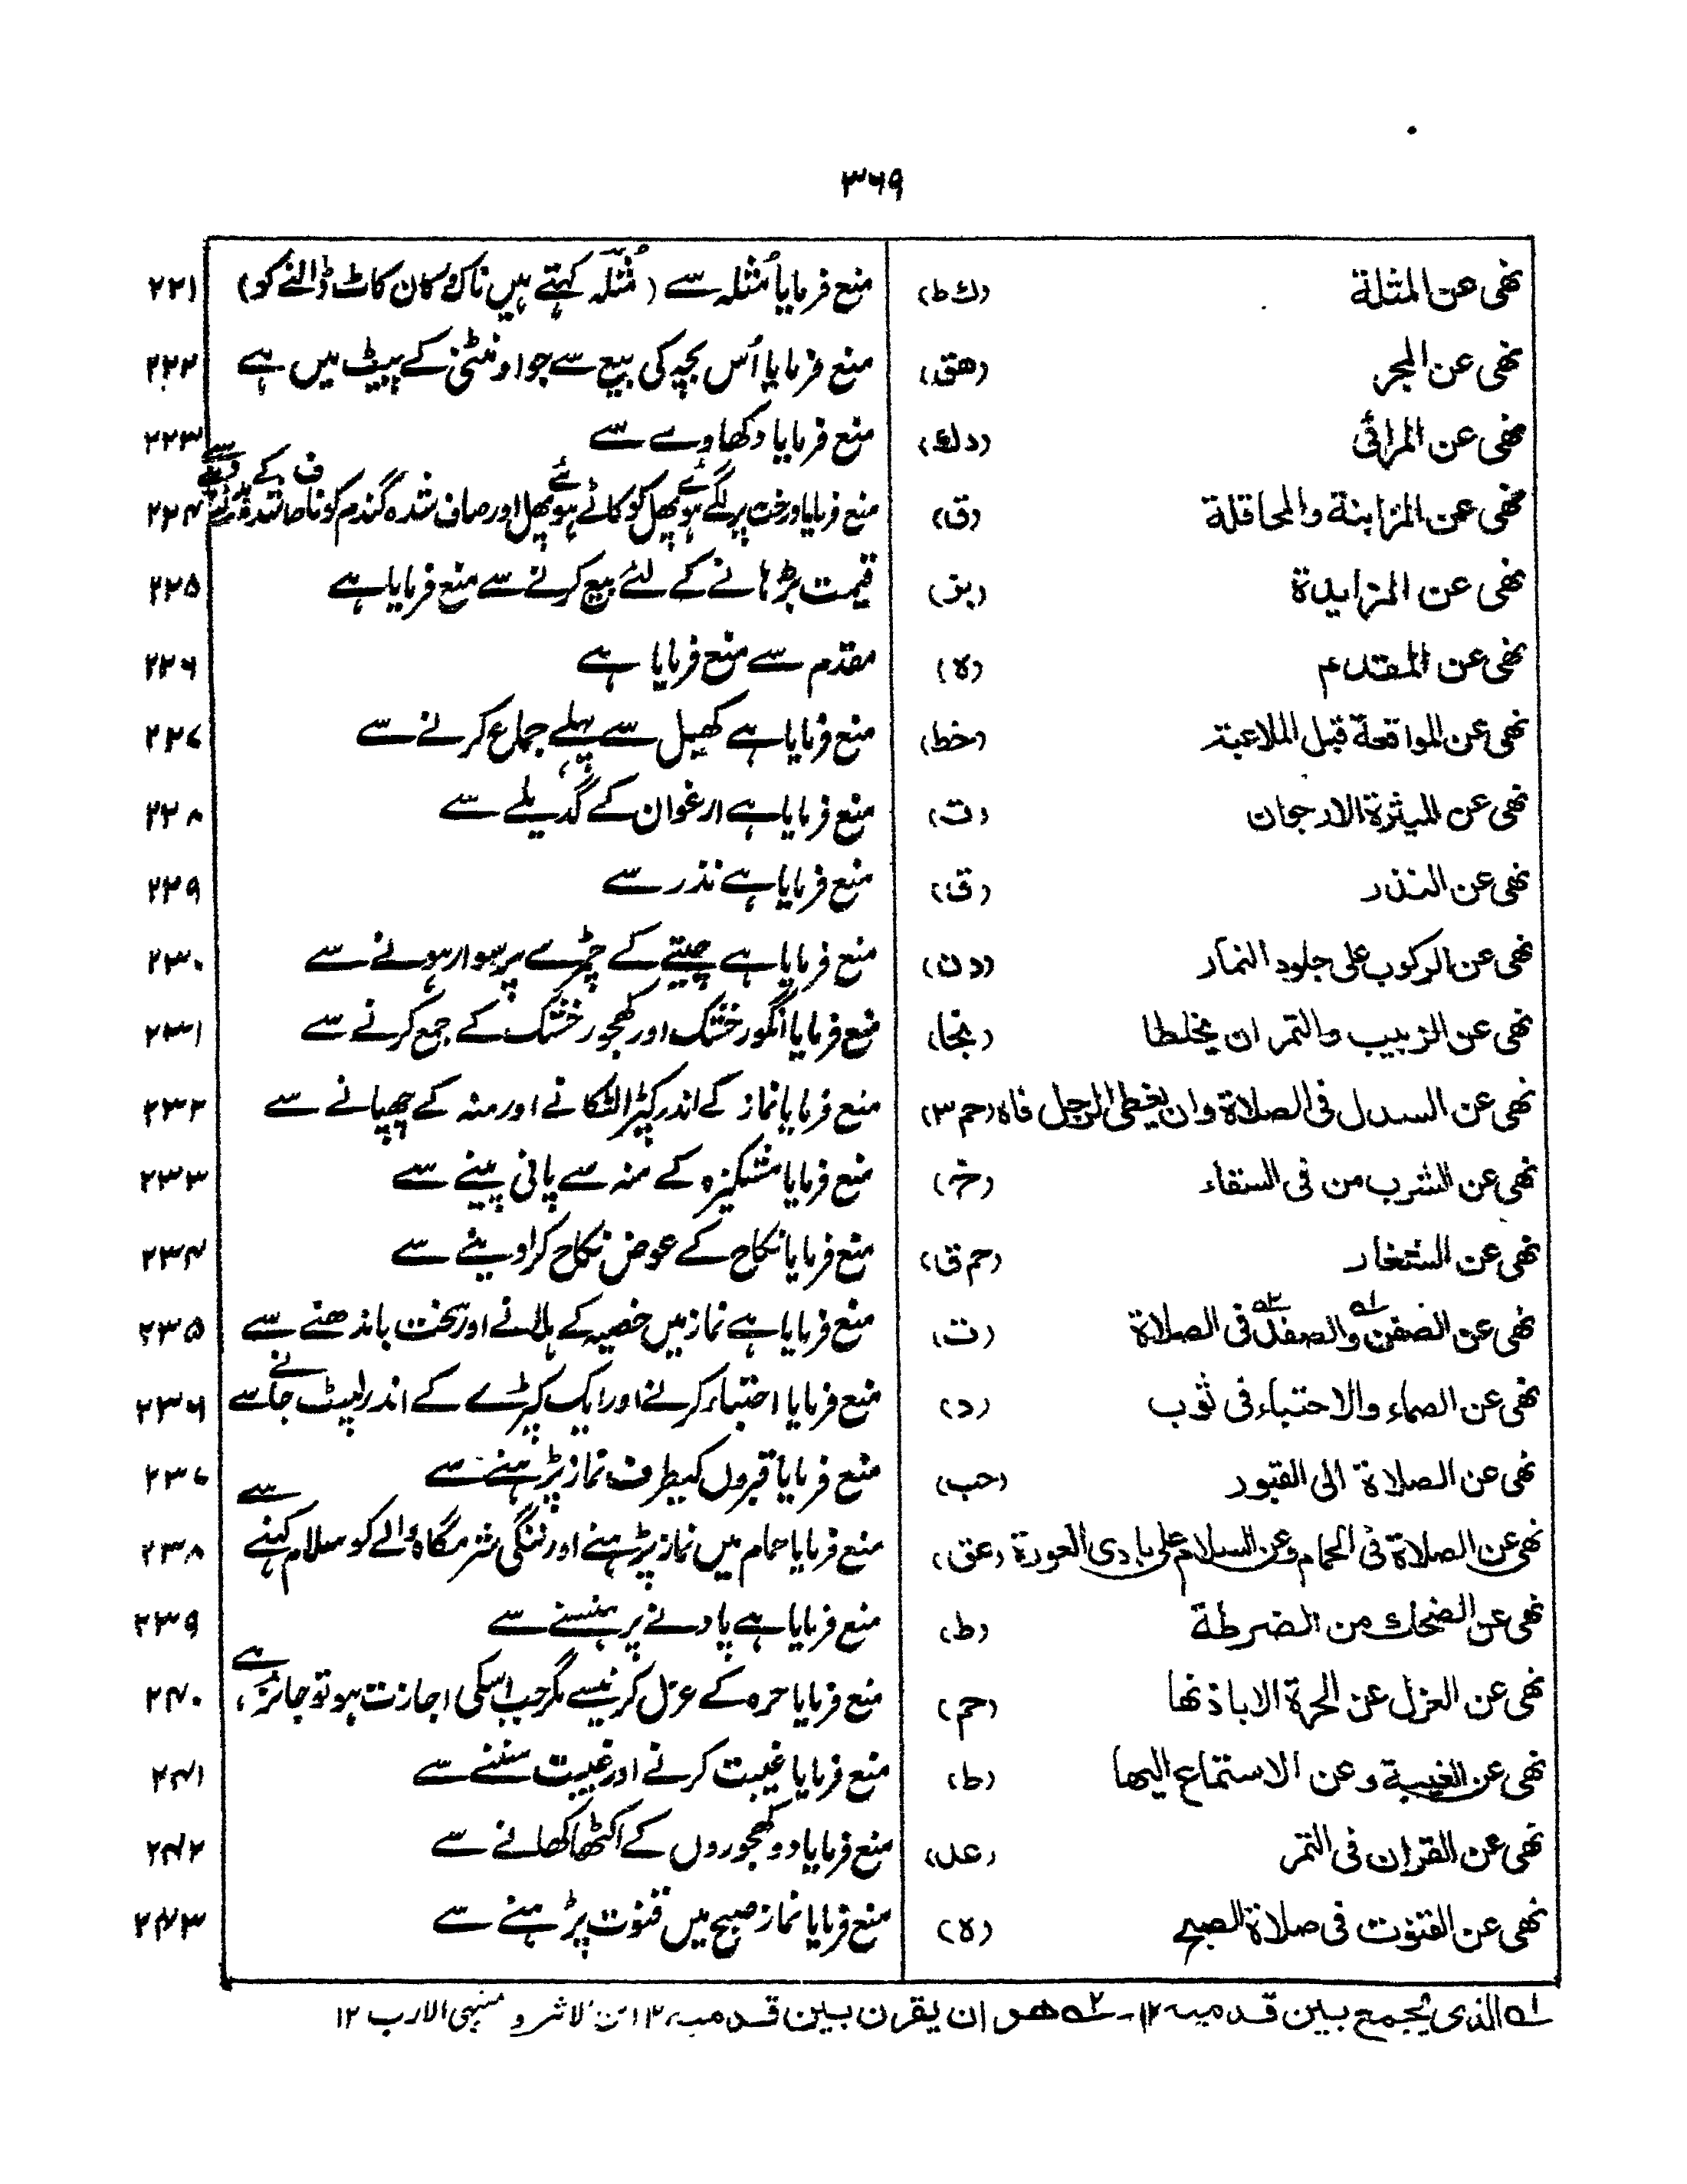 ۳۶۹
نھی عن المثلة (ك ط) منع فرمایا مُثلہ سے (مُثلہ کہتے ہیں ناک کان کاٹ ڈالنے کو) ۲۲۱
نھی عن المجر (ھق) منع فرمایا اُس بچہ کی بیع سے جو اونٹنی کے پیٹ میں ہے ۲۲۲
نھی عن المرائی (دك) منع فرمایا دکھاوے سے ۲۲۳
نھی عن المزابنة والمحاقلة (ق) منع فرمایا درخت پر لگے ہوئے پھل کو کاٹے ہوئے پھل اور صاف شدہ گندم کو ناصاف شدہ کے سے ۲۲۴
نھی عن المزایدة (بز) قیمت بڑہانے کے لئے بیع کرنے سے منع فرمایا ہے ۲۲۵
نھی عن المقدم (ہ) مقدم سے منع فرمایا ہے ۲۲۶
نھی عن المواقعة قبل الملاعبة (خط) منع فرمایا ہے کھیل سے پہلے جماع کرنے سے ۲۲۷
نھی عن المیثرة الارجوان (ت) منع فرمایا ہے ارغوان کے گدیلے سے ۲۲۸
نھی عن النذر (ق) منع فرمایا ہے نذر سے ۲۲۹
نھی عن الرکوب علی جلود النمار (دن) منع فرمایا ہے چیتے کے چمڑے پر سوار ہونے سے ۲۳۰
نھی عن الزبیب والتمر ان یخلطا منع فرمایا انگور خشک اور کھجور خشک کے جمع کرنے سے ۲۳۱
نھی عن السدل فی الصلاة وان یغطی الرجل فاه (حم ۳) منع فرمایا نماز کے اندر کپڑا لٹکانے اور منہ کے چھپانے سے ۲۳۲
نھی عن الشرب من فی السقاء (خ) منع فرمایا مشکیزہ کے منہ سے پانی پینے سے ۲۳۳
نھی عن الشغار (حم ق) منع فرمایا نکاح کے عوض نکاح کرا دینے سے ۲۳۴
نھی عن الصفن ۱؎ والصفد ۲؎ فی الصلاة (ت) منع فرمایا ہے نماز میں خصیہ کے ہلانے اور سخت باندھنے سے ۲۳۵
نھی عن الصماء والاحتباء فی ثوب (د) منع فرمایا احتباء کرنے اور ایک کپڑے کے اندر لپیٹ جانے سے ۲۳۶
نھی عن الصلاة الی القبور (حب) منع فرمایا قبروں کیطرف نماز پڑہنے سے ۲۳۷
نھی عن الصلاة فی الحمام وعن السلام علی بادی العورة (عق) منع فرمایا حمام میں نماز پڑہنے اور ننگی شرمگاہ والے کو سلام کہنے سے ۲۳۸
نھی عن الضحك من الضرطة (ط) منع فرمایا ہے پادنے پر ہنسنے سے ۲۳۹
نھی عن العزل عن الحرة الا باذنھا (حم) منع فرمایا حرہ کے عزل کرنیسے مگر جب اسکی اجازت ہو تو جائز ہے، ۲۴۰
نھی عن الغیبة وعن الاستماع الیھا (ط) منع فرمایا غیبت کرنے اور غیبت سننے سے ۲۴۱
نھی عن القران فی التمر (عد) منع فرمایا دو کھجوروں کے اکٹھا کھانے سے ۲۴۲
نھی عن القنوت فی صلاة الصبح (ہ) منع فرمایا نماز صبح میں قنوت پڑہنے سے ۲۴۳
۱؎ الذی یجمع بین قدمیہ ۱۲ ـ ۲؎ ھو ان یقرن بین قدمیہ ۱۲ ابن لاثیر و منتہی الارب ۱۲